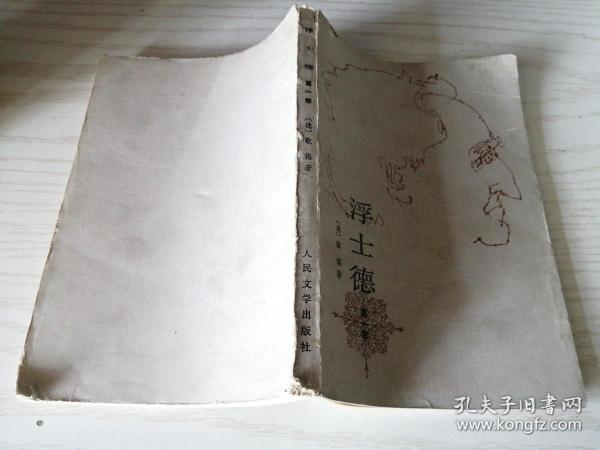 浮士德 第一部 〔德〕歌德著 人民文学出版社
浮士德
〔德〕歌德著
第一部
孔夫子旧书网
www.kongfz.com